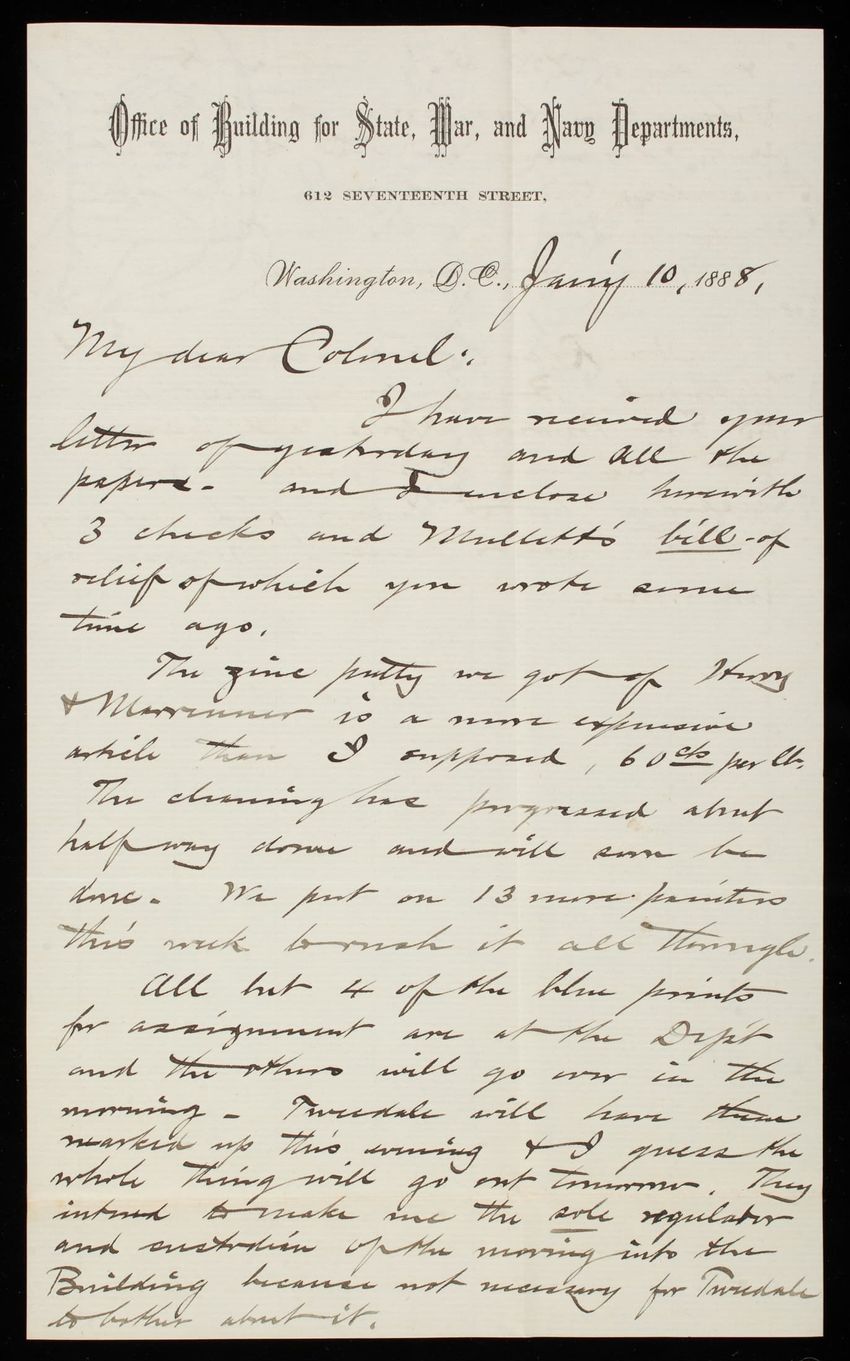 Office of Building for State, War, and Navy Departments,
612 SEVENTEENTH STREET,
Washington, D.C., Jan'y 10, 1888,
My dear Colonel:
I have received your
letter of yesterday and all the
papers - and I enclose herewith
3 checks and Mullett's bill - of
relief of which you wrote some
time ago.
The zinc putty we got of Henry
& is a more expensive
article than I supposed, 60 cts per lb.
The cleaning has progressed about
half way down and will soon be
done - We put on 13 more painters
this week to rush it all through.
All but 4 of the blue prints
for assignment are at the Dep't
and the others will go over in the
morning - Tweedale will have them
marked up this evening & I guess the
whole thing will go out tomorrow. They
intend to make me the sole regulator
and custodian of the moving into the
Building because not necessary for Tweedale
to bother about it.